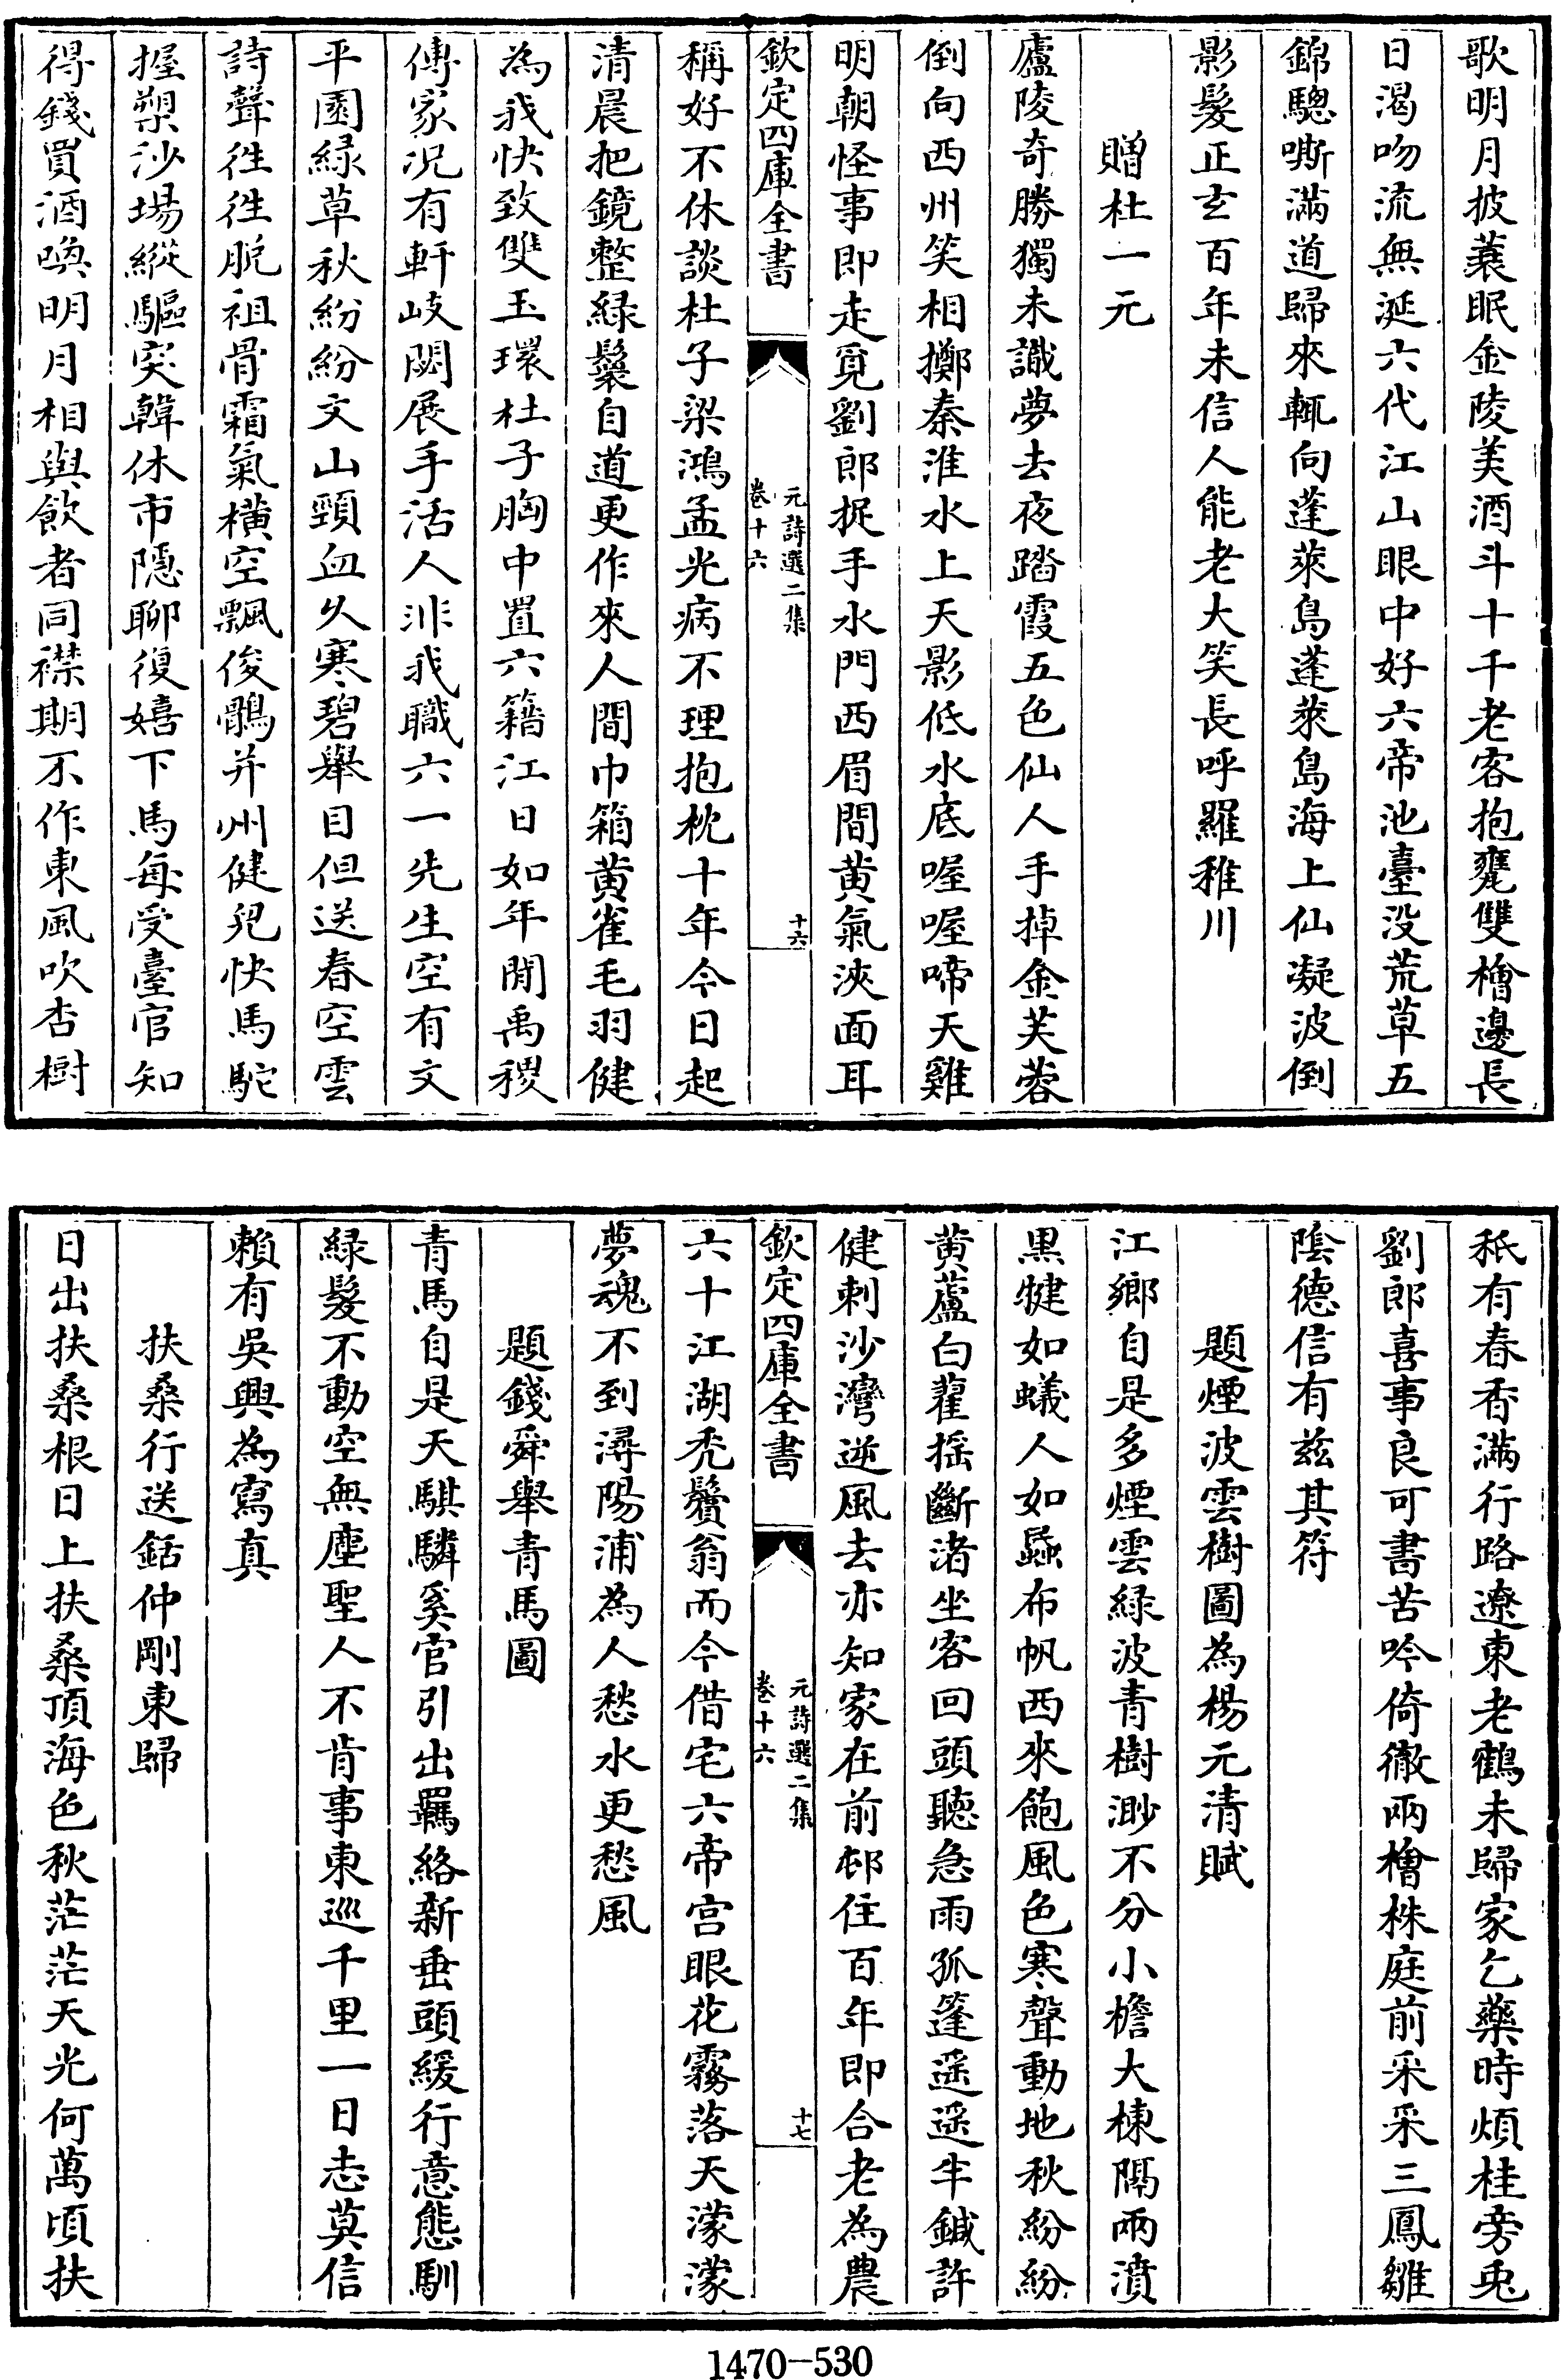 歌明月披蓑眠金陵美酒斗十千老客抱甕雙檜邊長
日渴吻流無涎六代江山眼中好六帝池臺没荒草五
錦驄嘶滿道歸來輒向蓬萊島蓬萊島海上仙凝波倒
影髮正玄百年未信人能老大笑長呼羅稚川
贈杜一元
廬陵奇勝獨未識夢去夜踏霞五色仙人手掉金芙蓉
倒向西州笑相擲秦淮水上天影低水底喔喔啼天雞
明朝怪事即走覓劉郎捉手水門西眉間黄氣浹面耳
欽定四庫全書
元詩選二集
卷十六
十六
稱好不休談杜子梁鴻孟光病不理抱枕十年今日起
清晨把鏡整緑鬟自道更作來人間巾箱黄雀毛羽健
為我快致雙玉環杜子胸中置六籍江日如年閒禹稷
傳家况有軒岐閟展手活人非我職六一先生空有文
平園緑草秋紛紛文山頸血久寒碧舉目但送春空雲
詩聲往往脱祖骨霜氣横空飄俊鶻并州健兒快馬駝
握槊沙場縱驅突韓休市隱聊復嬉下馬每受臺官知
得錢買酒喚明月相與飲者同襟期不作東風吹杏樹
秖有春香滿行路遼東老鶴未歸家乞藥時煩桂旁兎
劉郎喜事良可書苦吟倚徹兩檜株庭前采采三鳳雛
陰德信有兹其符
題煙波雲樹圖為楊元清賦
江鄉自是多煙雲緑波青樹渺不分小檐大棟隔兩濆
黒犍如蟻人如蝨布帆西來飽風色寒聲動地秋紛紛
黄蘆白藋摇斷渚坐客回頭聽急雨孤篷遥遥牛鍼許
健刺沙灣逆風去亦知家在前邨住百年即合老為農
欽定四庫全書
元詩選二集
卷十六
十七
六十江湖秃鬢翁而今借宅六帝宫眼花霧落天濛濛
夢魂不到潯陽浦為人愁水更愁風
題錢舜舉青馬圖
青馬自是天騏驎奚官引出羈絡新垂頭緩行意態馴
緑髮不動空無塵聖人不肯事東巡千里一日志莫信
賴有吳興為寫真
扶桑行送銛仲剛東歸
日出扶桑根日上扶桑頂海色秋茫茫天光何萬頃扶
1470-530